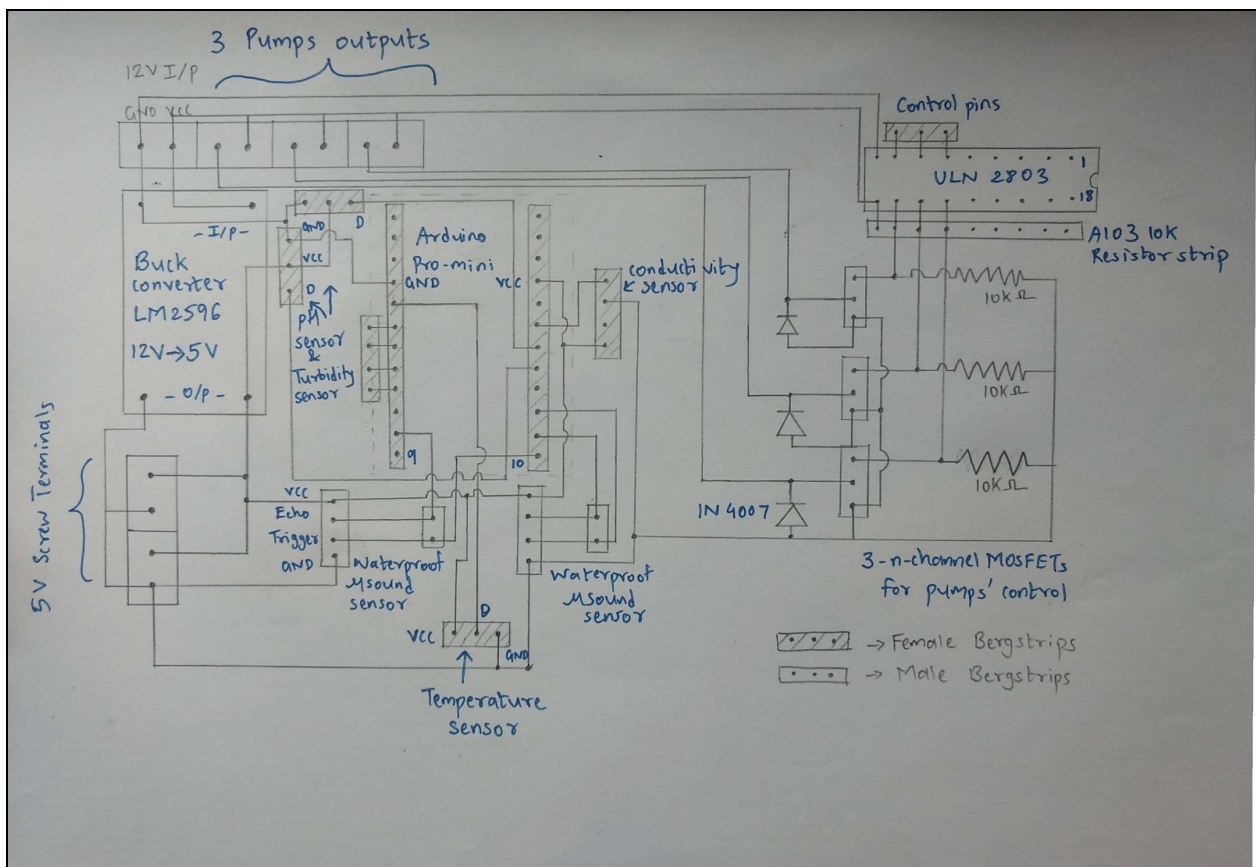 3 Pumps outputs
12V I/P
GND VCC
Control pins
1
ULN 2803
18
A103 10K
Resistor strip
GND D
VCC
D
- I/P -
Buck
converter
LM2596
12V→5V
- O/P -
pH
sensor
&
Turbidity
sensor
Arduino
Pro-mini
GND
VCC
9
10
conductivity
sensor
10KΩ
10KΩ
10KΩ
IN 4007
3-n-channel MOSFETs
for pumps' control
5V Screw Terminals
VCC
Echo
Trigger
GND
Waterproof
μsound
sensor
Waterproof
μsound
sensor
VCC
D
GND
Temperature
sensor
→ Female Bergstrips
→ Male Bergstrips